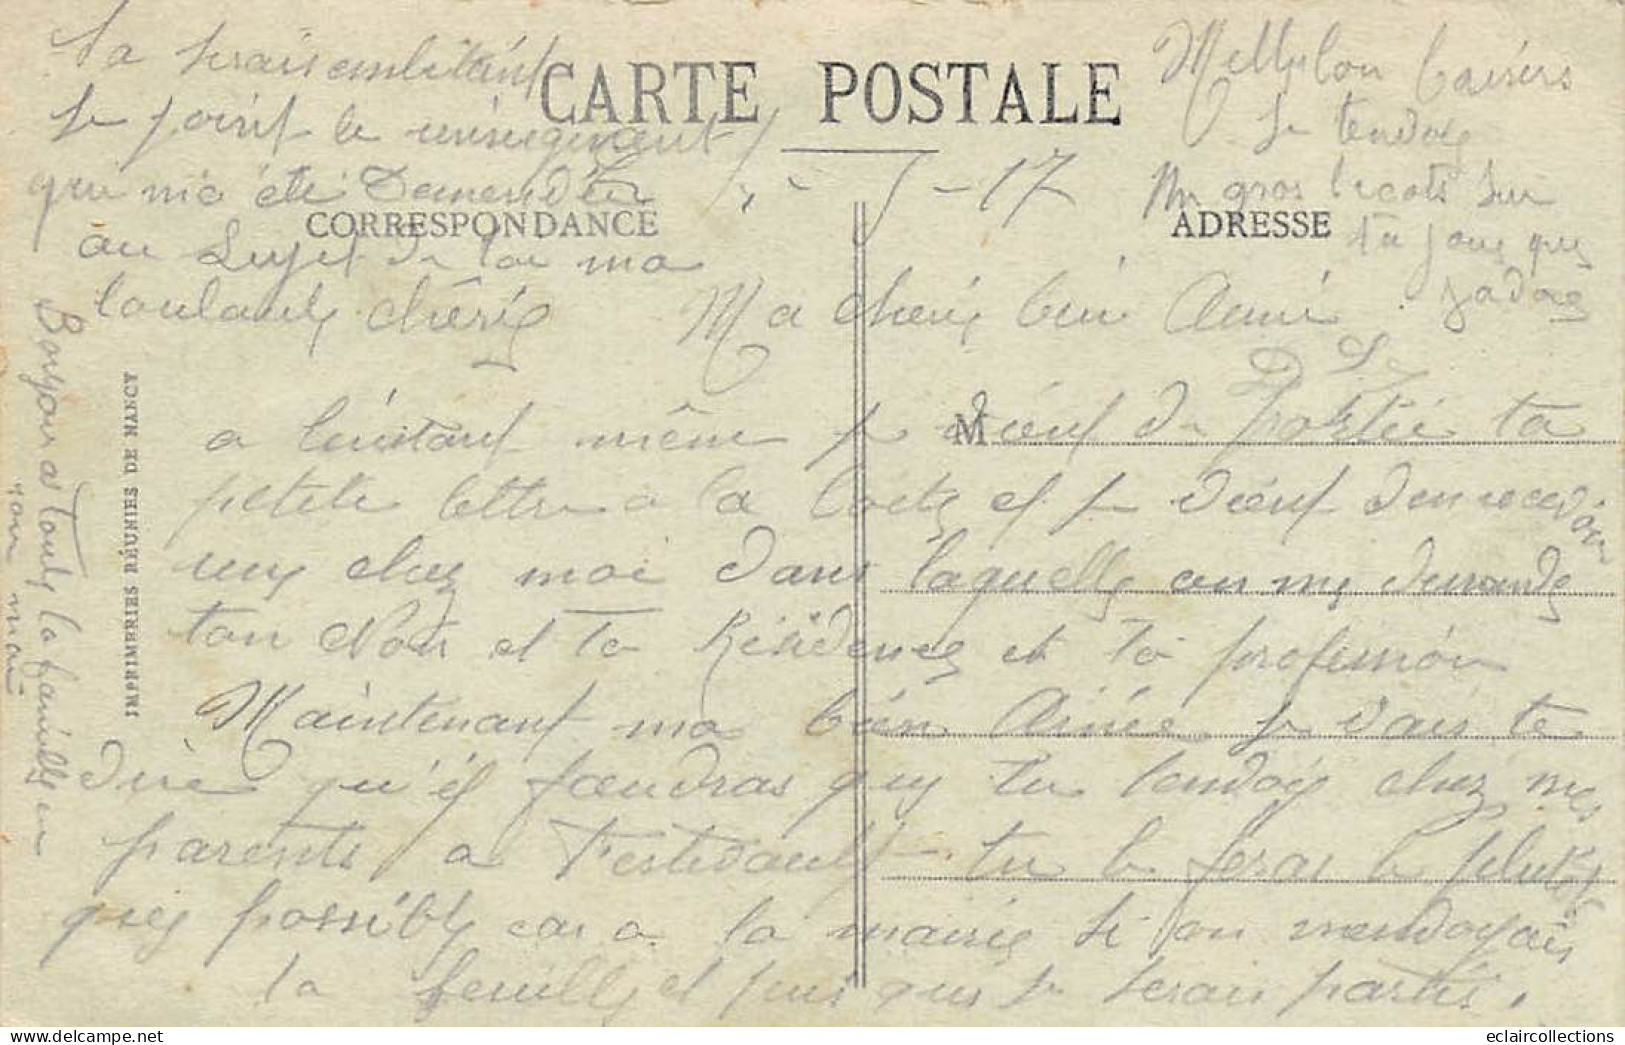 CARTE POSTALE
CORRESPONDANCE
ADRESSE
- 17
Ma chérie bien Aimé
a l'instant même je vient de portée ta
petite lettre a la boite et je vient d'en recevoir
une chez moi dans laquelle on me demande
ton Nom et ta Résidence et ta profession
Maintenant ma bien Aimée je vais te
dire qu'il faudras que tu envois chez mes
parents a tu le feras le plutot
que possible car a la mairie si on renvoyais
la feuille et puis que je serais partis.
Sa serais embétant
je point le renseignement
que m'a été demander
au sujet de toi ma
chérie
Mille bon baisers
je t'envois
un gros becots sur
ta joue que
j'adore
Bonjour a toute la famille en
M
IMPRIMERIES RÉUNIES DE NANCY
eclaircollections